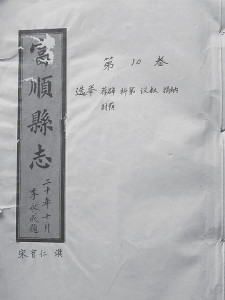 富順縣志
二十年十月
第10卷
选举 荐辟 科第 议叙 捐纳
封荫
宋育仁 撰